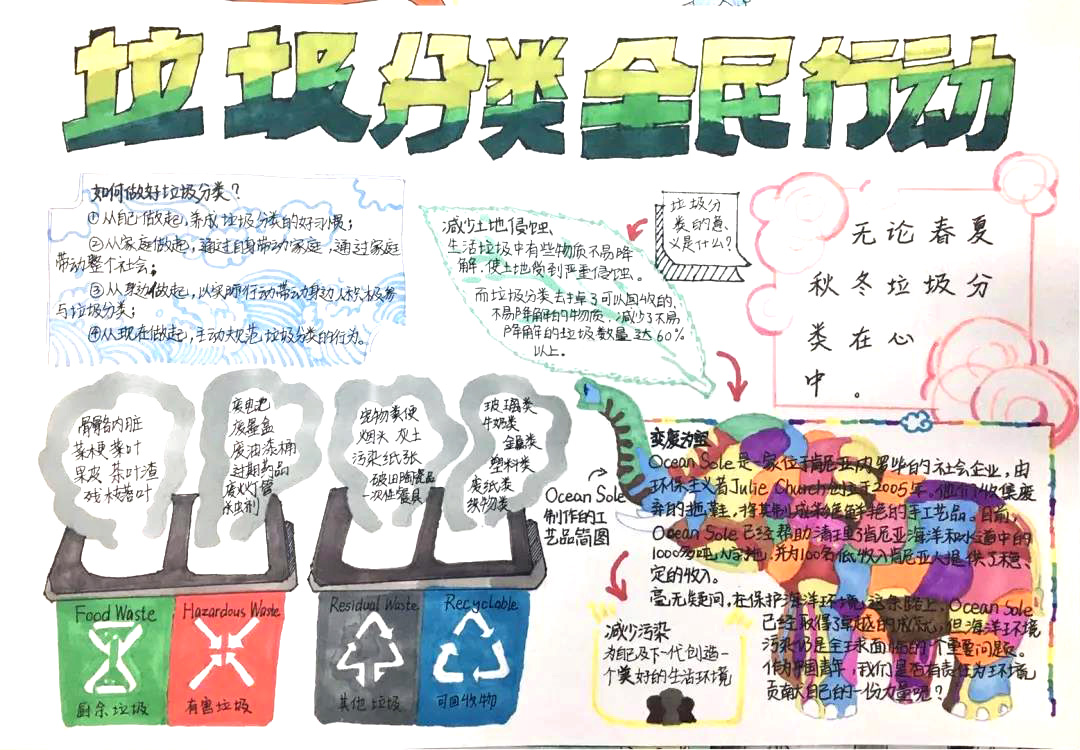 垃圾分类全民行动
如何做好垃圾分类？
①从自己做起，养成垃圾分类的好习惯；
②从家庭做起，通过自身带动家庭，通过家庭
带动整个社会；
③从身边做起，以实际行动带动身边人积极参
与垃圾分类；
④从现在做起，主动规范垃圾分类的行为。
减少土地侵蚀、
生活垃圾中有些物质不易降
解，使土地受到严重侵蚀。
而垃圾分类去掉了可以回收的、
不易降解的物质，减少了不易
降解的垃圾数量达60%
以上。
垃圾分
类的意
义是什么？
无论春夏
秋冬垃圾分
类在心
中。
骨骼内脏
菜梗菜叶
果皮 茶叶渣
残枝落叶
废电池
废墨盒
废油漆桶
过期药品
废灯管
杀虫剂
宠物粪便
烟头 灰土
污染纸张
破旧陶瓷品
一次性餐具
玻璃类
牛奶类
金属类
塑料类
废纸类
织物类
Food Waste
厨余垃圾
Hazardous Waste
有害垃圾
Residual Waste
其他垃圾
Recyclable
可回收物
Ocean Sole
制作的工
艺品简图
减少污染
为自己及下一代创造一
个美好的生活环境
变废为宝
Ocean Sole是一家位于肯尼亚内罗毕的社会企业，由
环保主义者Julie Church创立于2005年。他们收集废
弃的拖鞋，将其制成为鲜艳的手工艺品。目前，
Ocean Sole已经帮助清理了肯尼亚海洋和水道中的
1000多吨人字拖，并为100名低收入肯尼亚人提供了稳
定的收入。
毫无疑问，在保护海洋环境这条路上，Ocean Sole
已经取得了卓越的成就，但海洋环境
污染仍是全球面临的一个重要问题。
作为中国青年，我们是否有责任为环境
贡献自己的一份力量呢？